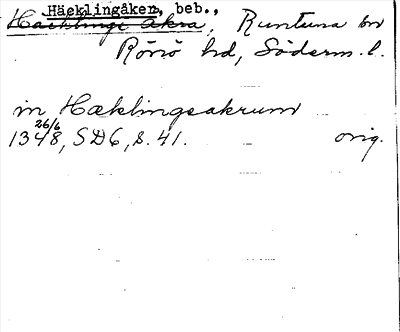 Häeklingåker, beb.,
Haeklinge åkra, Runtuna sn
Rönö hd, Söderm. l.
in Hæklingsakrum
26/6
1348, SD6, s. 41. orig.